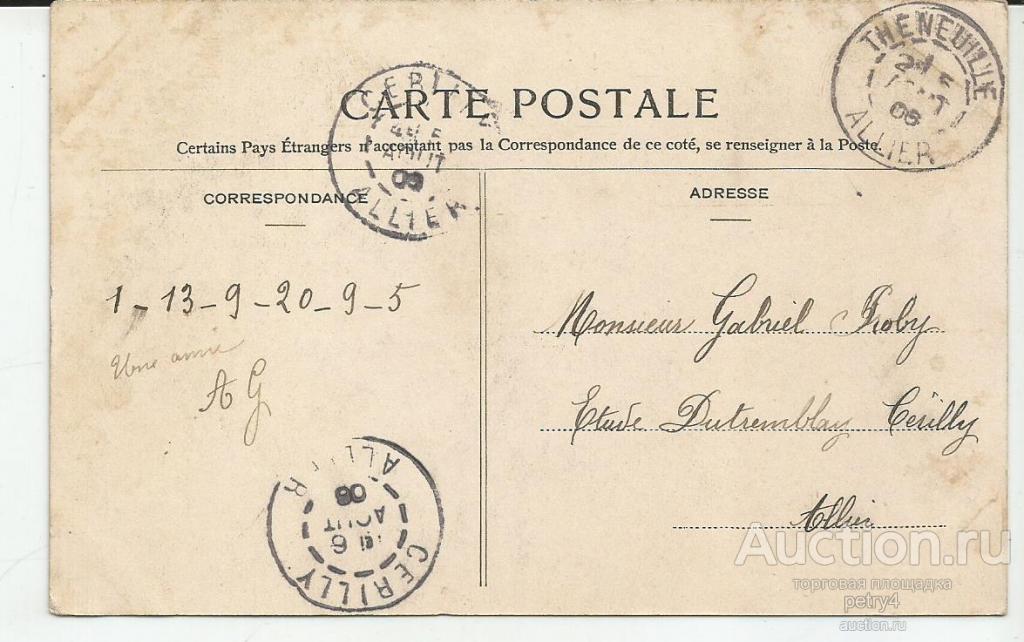 THENEUILLE
AOUT
06
ALLIER
CERILLY
AOUT
ALLIER
CARTE POSTALE
Certains Pays Étrangers n'acceptant pas la Correspondance de ce coté, se renseigner à la Poste.
CORRESPONDANCE
ADRESSE
1-13-9-20-9-5
Une amie
A G
Monsieur Gabriel Proby
Etude Dutremblay Cérilly
Allier
ALLIER
AOUT
6
CERILLY
Auction.ru
торговая площадка
petry4
auction.ru